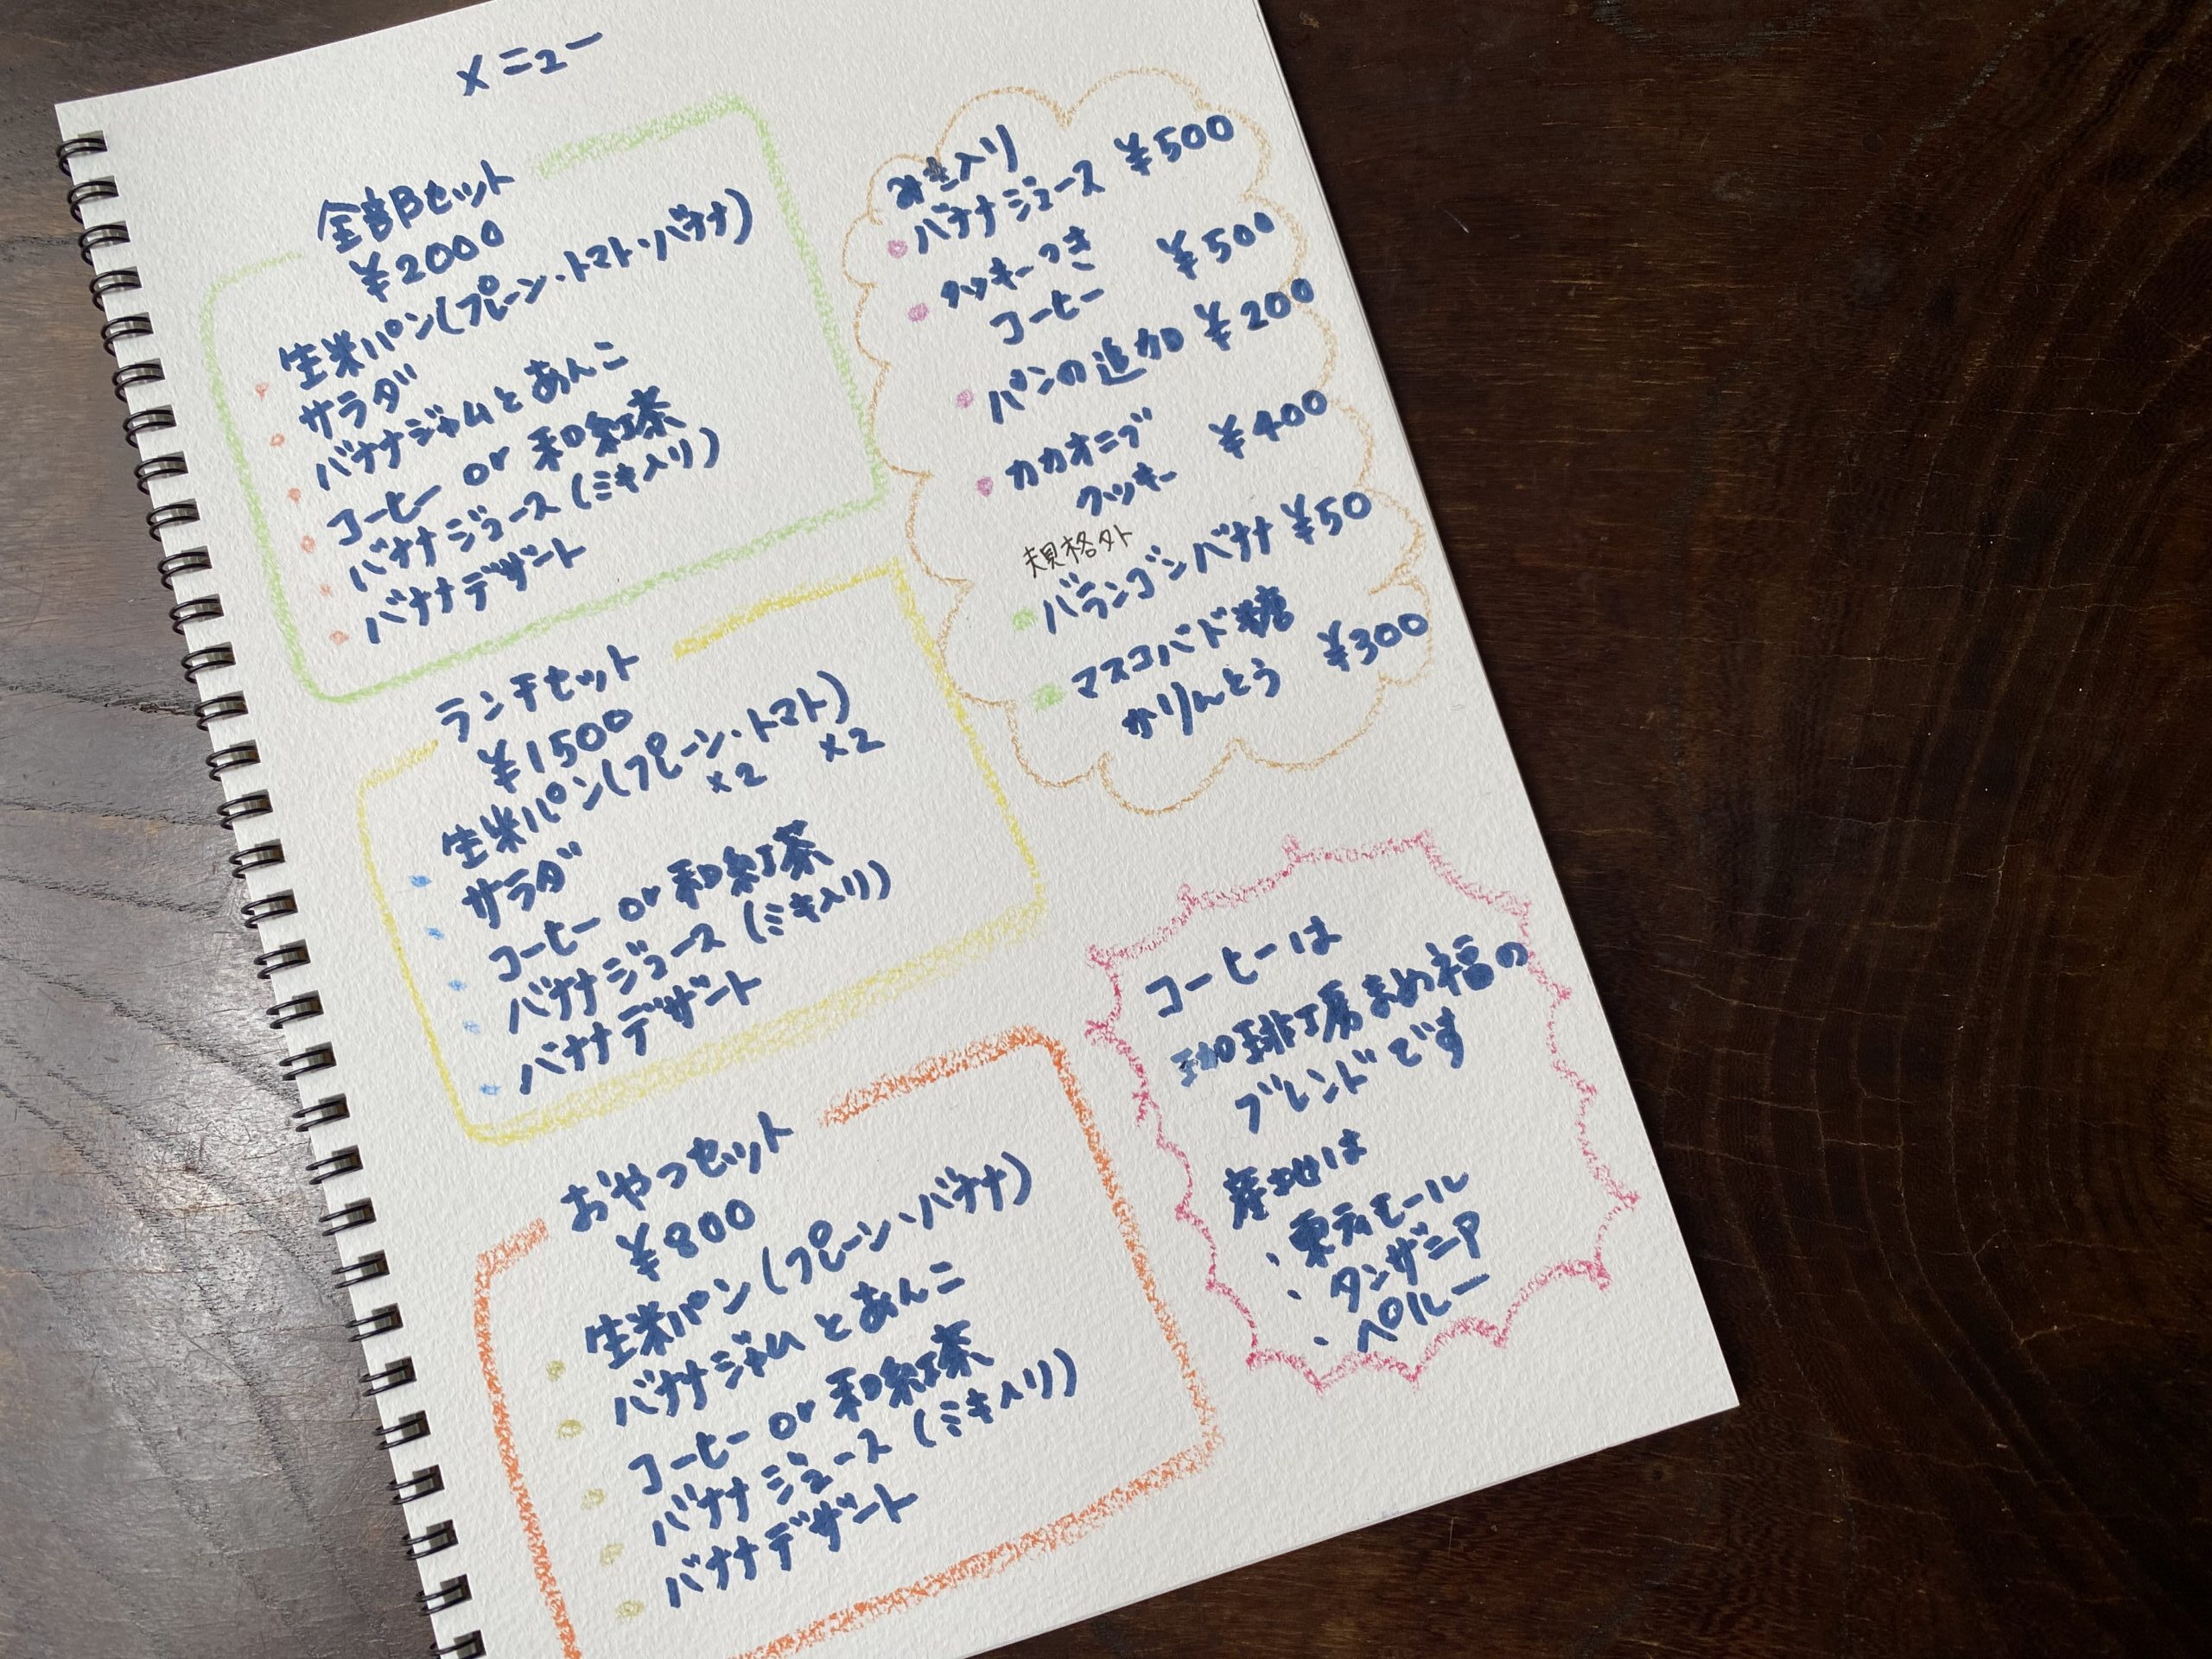 メニュー
全部セット
¥2000
生米パン(プレーン・トマト・バナナ)
サラダ
バナナジャムとあんこ
コーヒー or 和紅茶
バナナジュース(ミキ入り)
バナナデザート
ランチセット
¥1500
生米パン(プレーン・トマト)
×2 ×2
サラダ
コーヒー or 和紅茶
バナナジュース(ミキ入り)
バナナデザート
おやつセット
¥800
生米パン(プレーン・バナナ)
バナナジャムとあんこ
コーヒー or 和紅茶
バナナジュース(ミキ入り)
バナナデザート
みき入り
バナナジュース ¥500
クッキーつき
コーヒー ¥500
パンの追加 ¥200
カカオニブ
クッキー ¥400
規格外
バランゴンバナナ ¥50
マスコバド糖
かりんとう ¥300
コーヒーは
珈琲工房まめ福の
ブレンドです
産地は
・東ティモール
・タンザニア
・ペルー